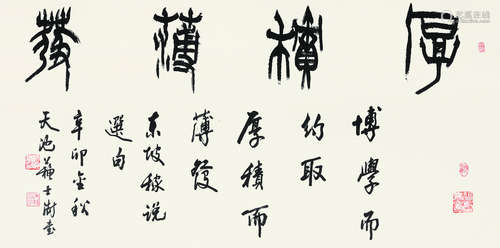 厚積薄發
博學而
約取
厚積而
薄發
東坡稼說
選句
辛卯金秋
天池蘇士澍書